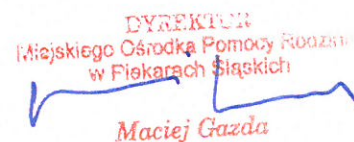 DYREKTOR
Miejskiego Ośrodka Pomocy Rodzinie
w Piekarach Śląskich
Maciej Gazda